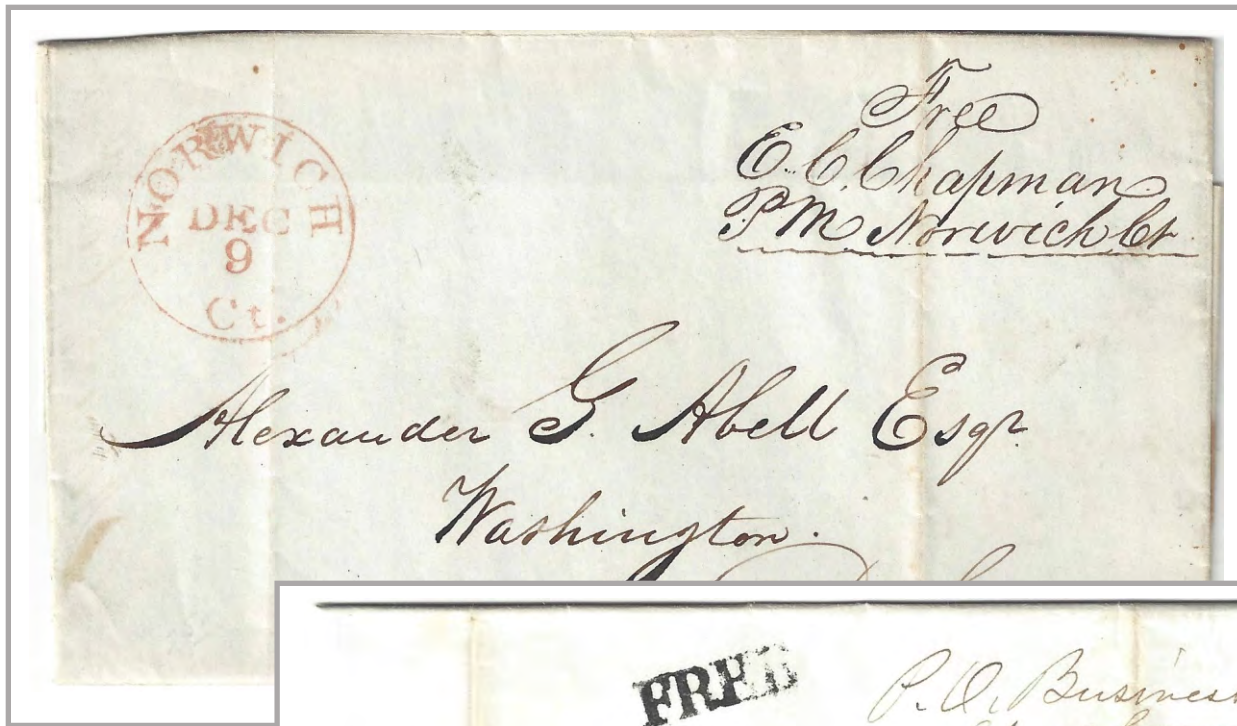 NORWICH
DEC
9
Ct.
Free
E. C. Chapman
PM Norwich Ct
Alexander G. Abell Esqr
Washington.
FREE
P. O. Business